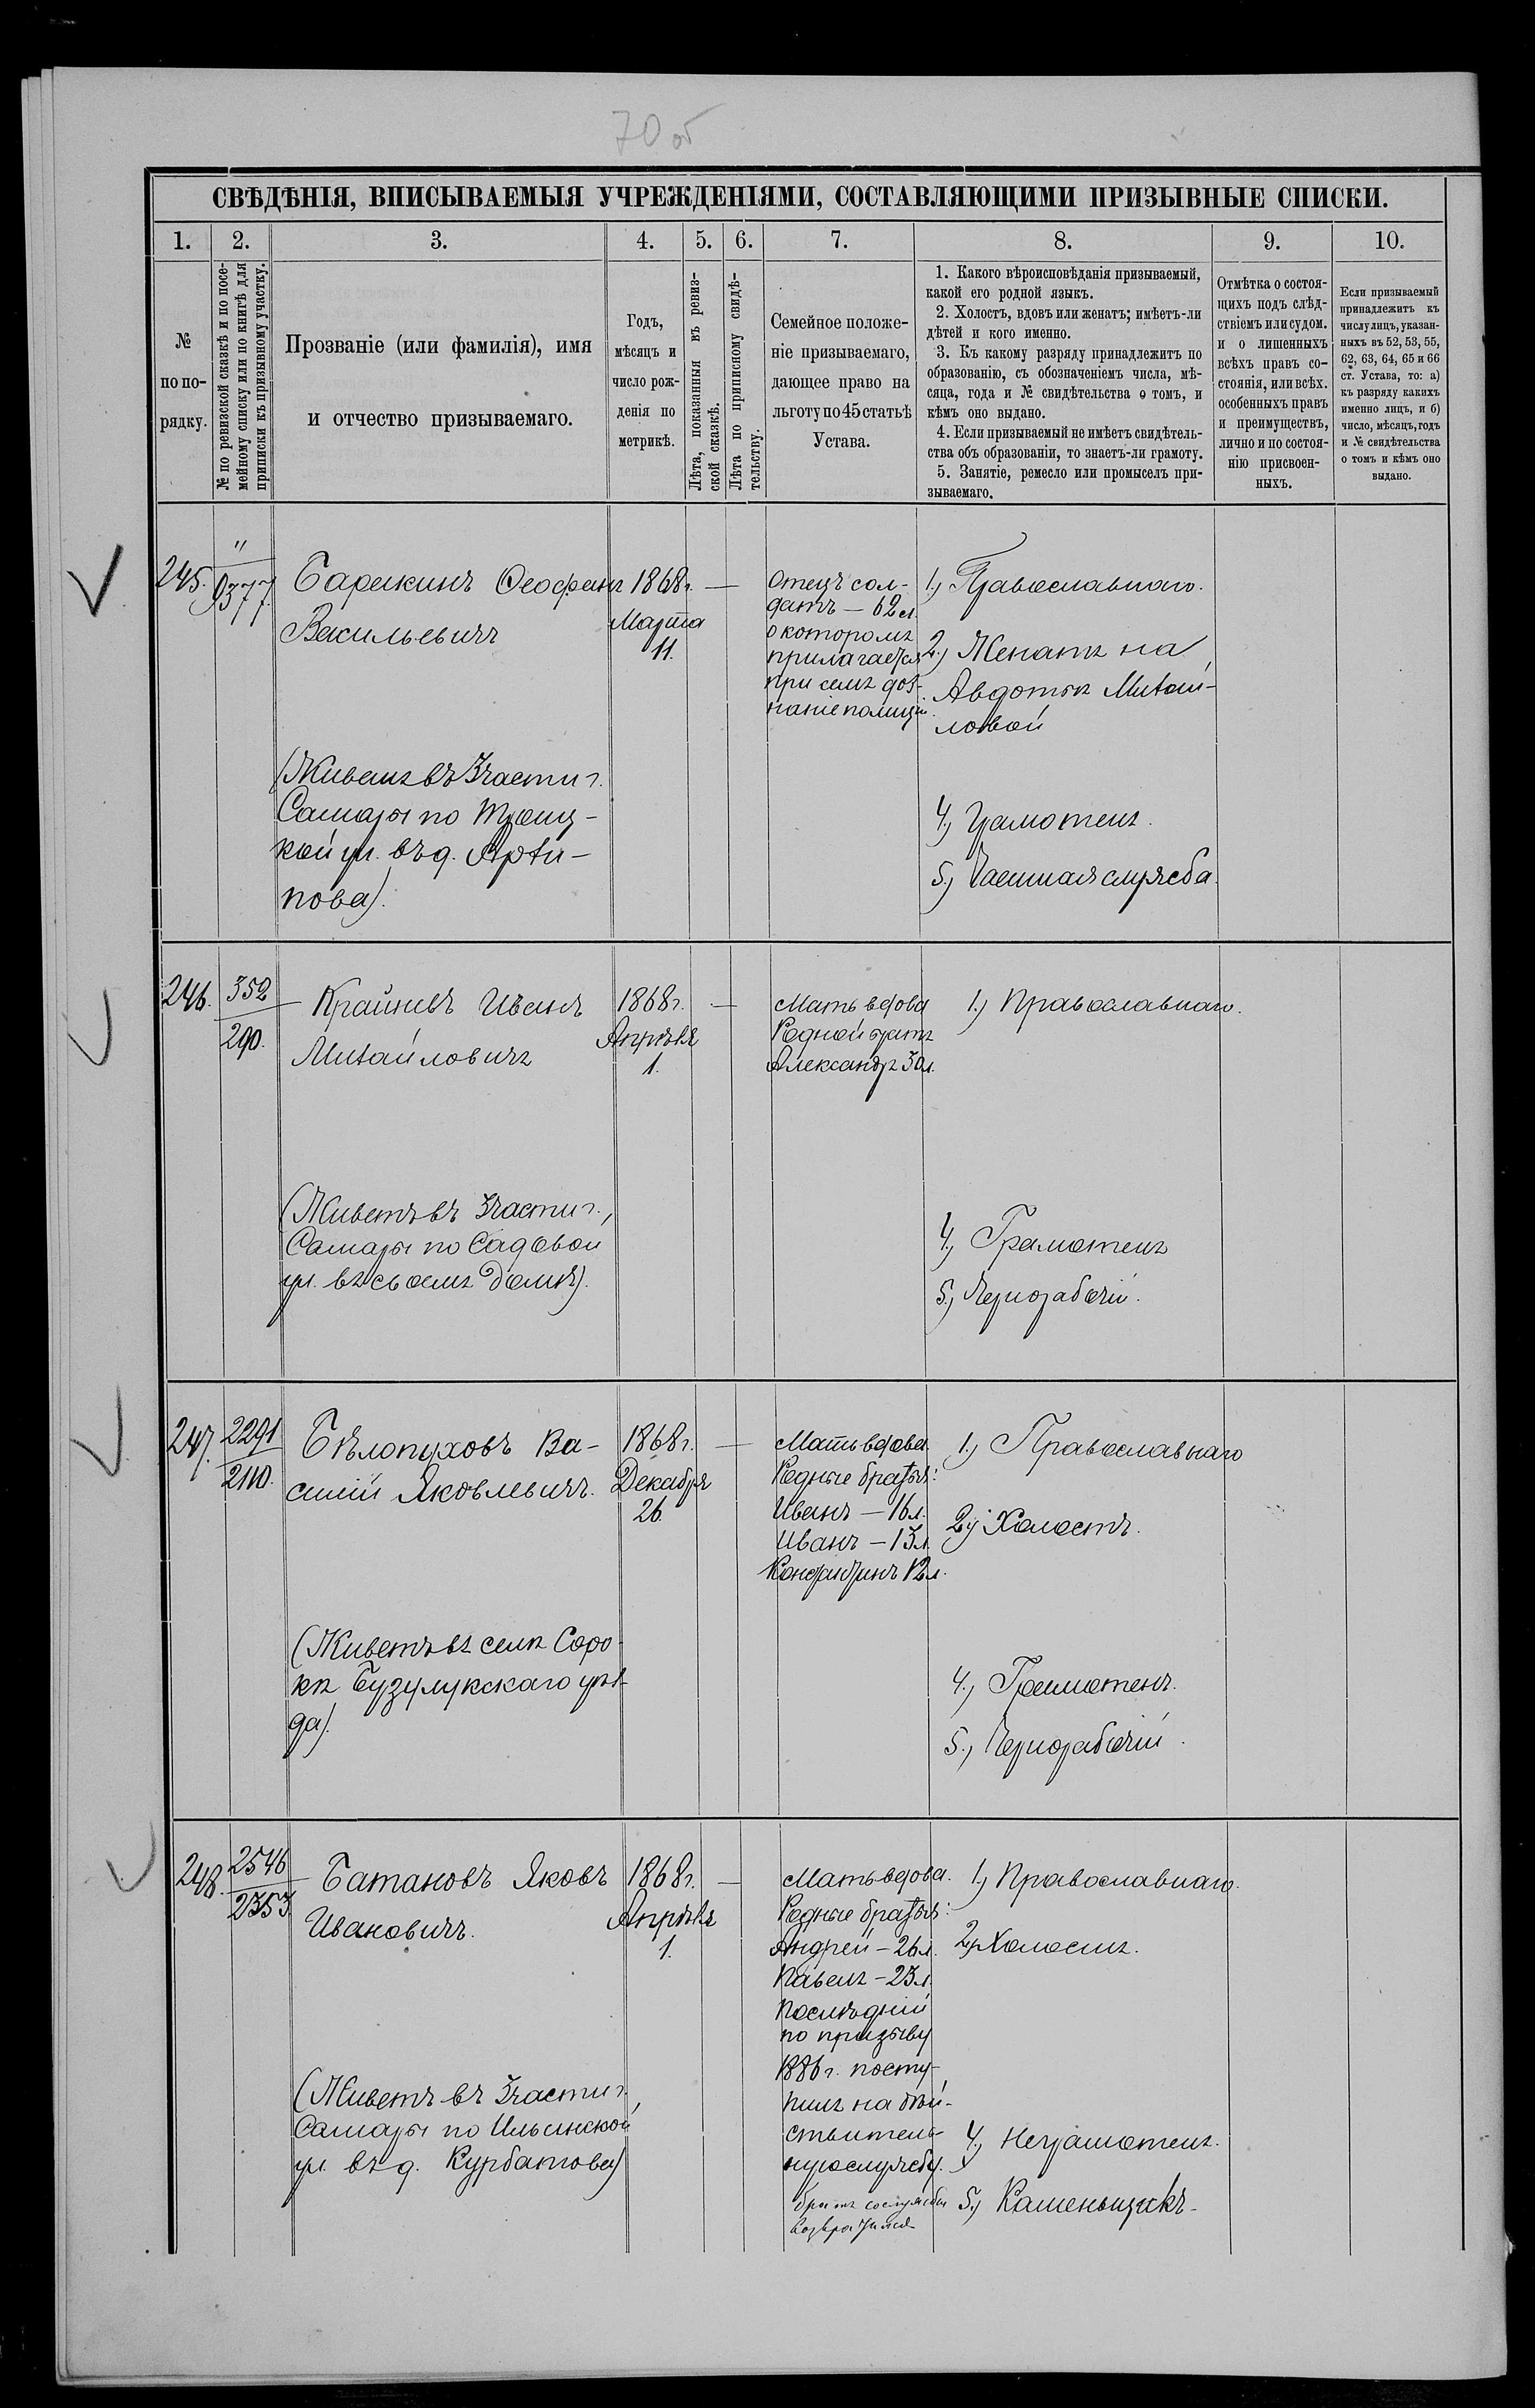 70 об
СВѢДѢНІЯ, ВПИСЫВАЕМЫЯ УЧРЕЖДЕНІЯМИ, СОСТАВЛЯЮЩИМИ ПРИЗЫВНЫЕ СПИСКИ.
1. 2. 3. 4. 5. 6. 7. 8. 9. 10.
№
по по-
рядку.
№ по ревизской сказкѣ и по посе-
мейному списку или по книгѣ для
приписки къ призывному участку.
Прозваніе (или фамилія), имя
и отчество призываемаго.
Годъ,
мѣсяцъ и
число рож-
денія по
метрикѣ.
Лѣта, показанныя въ ревиз-
ской сказкѣ.
Лѣта по приписному свидѣ-
тельству.
Семейное положе-
ніе призываемаго,
дающее право на
льготу по 45 статьѣ
Устава.
1. Какого вѣроисповѣданія призываемый,
какой его родной языкъ.
2. Холостъ, вдовъ или женатъ; имѣетъ-ли
дѣтей и кого именно.
3. Къ какому разряду принадлежитъ по
образованію, съ обозначеніемъ числа, мѣ-
сяца, года и № свидѣтельства о томъ, и
кѣмъ оно выдано.
4. Если призываемый не имѣетъ свидѣтель-
ства объ образованіи, то знаетъ-ли грамоту.
5. Занятіе, ремесло или промыселъ при-
зываемаго.
Отмѣтка о состоя-
щихъ подъ слѣд-
ствіемъ или судом.
и о лишенныхъ
всѣхъ правъ со-
стоянія, или всѣх.
особенныхъ правъ
и преимуществъ,
лично и по состоя-
нію присвоен-
ныхъ.
Если призываемый
принадлежитъ къ
числу лицъ, указан-
ныхъ въ 52, 53, 55,
62, 63, 64, 65 и 66
ст. Устава, то: а)
къ разряду какихъ
именно лицъ, и б)
число, мѣсяцъ, годъ
и № свидѣтельства
о томъ и кѣмъ оно
выдано.
245.
"
9377.
Ѳеофанъ
Васильевичъ
(Живетъ въ 3 части г.
Самары по Троиц-
кой ул. въ д. Архи-
пова).
1868 г.
Марта
11.
—
Отецъ сол-
датъ — 62 л.
о которомъ
прилагается
при семъ доз-
наніе полиціи.
1.) Православнаго.
2.) Женатъ на
Авдотьѣ Михай-
ловой
4.) Грамотенъ.
5.) служба.
246.
352
290.
Крайневъ Иванъ
Михайловичъ
(Живетъ въ 3 части г.
Самары по Садовой
ул. въ своемъ домѣ).
1868 г.
Апрѣля
1.
—
Мать вдова
Родной братъ
Александръ 30 л.
1.) Православнаго.
4.) Грамотенъ
5.) Чернорабочій.
247.
2291
2110.
Бѣлопуховъ Ва-
силій Яковлевичъ.
(Живетъ въ селѣ Соро-
кѣ Бузулукскаго уѣз-
да).
1868 г.
Декабря
26.
—
Мать вдова
Родные братья:
Иванъ — 16 л.
Иванъ — 13 л.
Константинъ 12 л.
1.) Православнаго
2.) Холостъ.
4.) Грамотенъ.
5.) Чернорабочій.
248.
2546
2353
Батановъ Яковъ
Ивановичъ.
(Живетъ въ 3 части г.
Самары по Ильинской
ул. въ д. Курбатова)
1868 г.
Апрѣля
1.
—
Мать вдова.
Родные братья:
Андрей — 26 л.
Павелъ — 23 л.
Послѣдній
по призыву
1886 г. посту-
пилъ на дѣй-
ствитель-
ную службу.
братъ со службы
возвратился
1.) Православнаго.
2.) Холостъ.
4.) Неграмотенъ.
5.) Каменьщикъ.